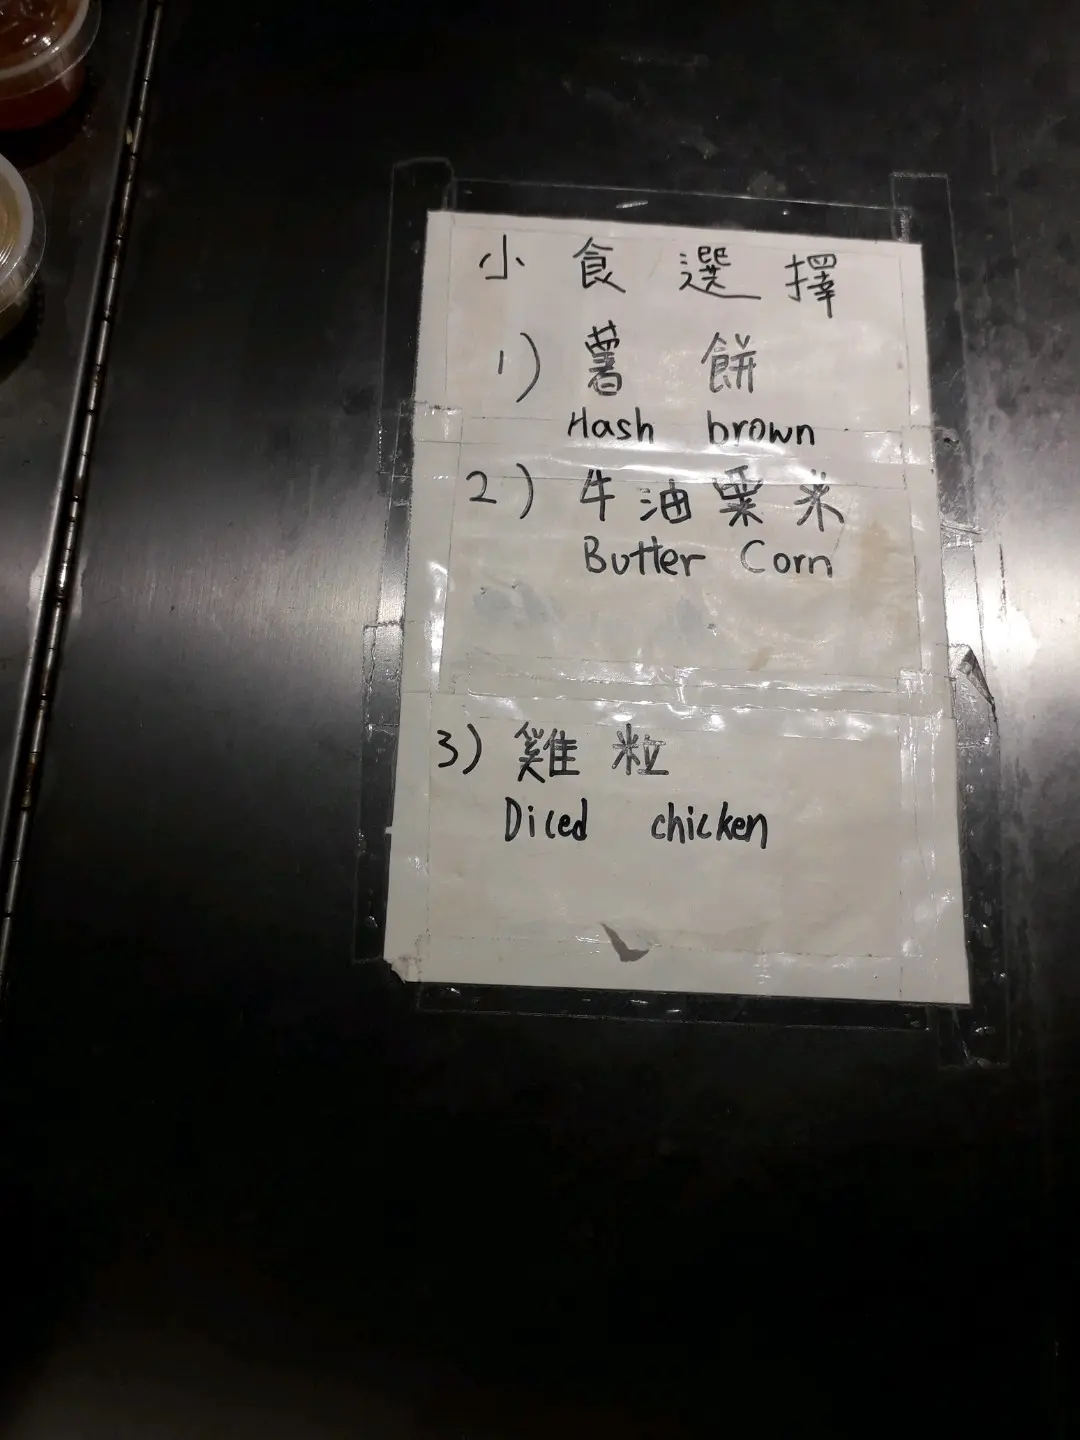 小食選擇
1) 薯餅
Hash brown
2) 牛油粟米
Butter Corn
3) 雞粒
Diced chicken